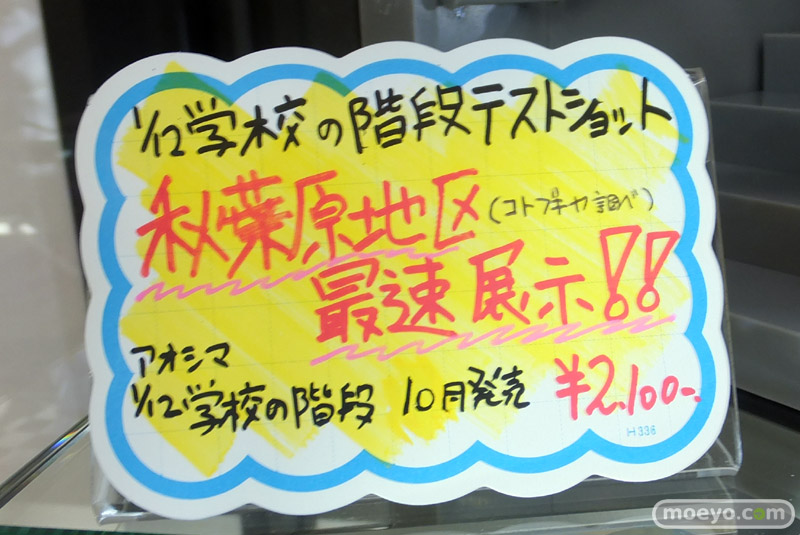 1/12学校の階段テストショット
秋葉原地区(コトブキヤ調べ)
最速展示!!
アオシマ
1/12学校の階段 10月発売 ¥2,100-.
H336
moeyo.com